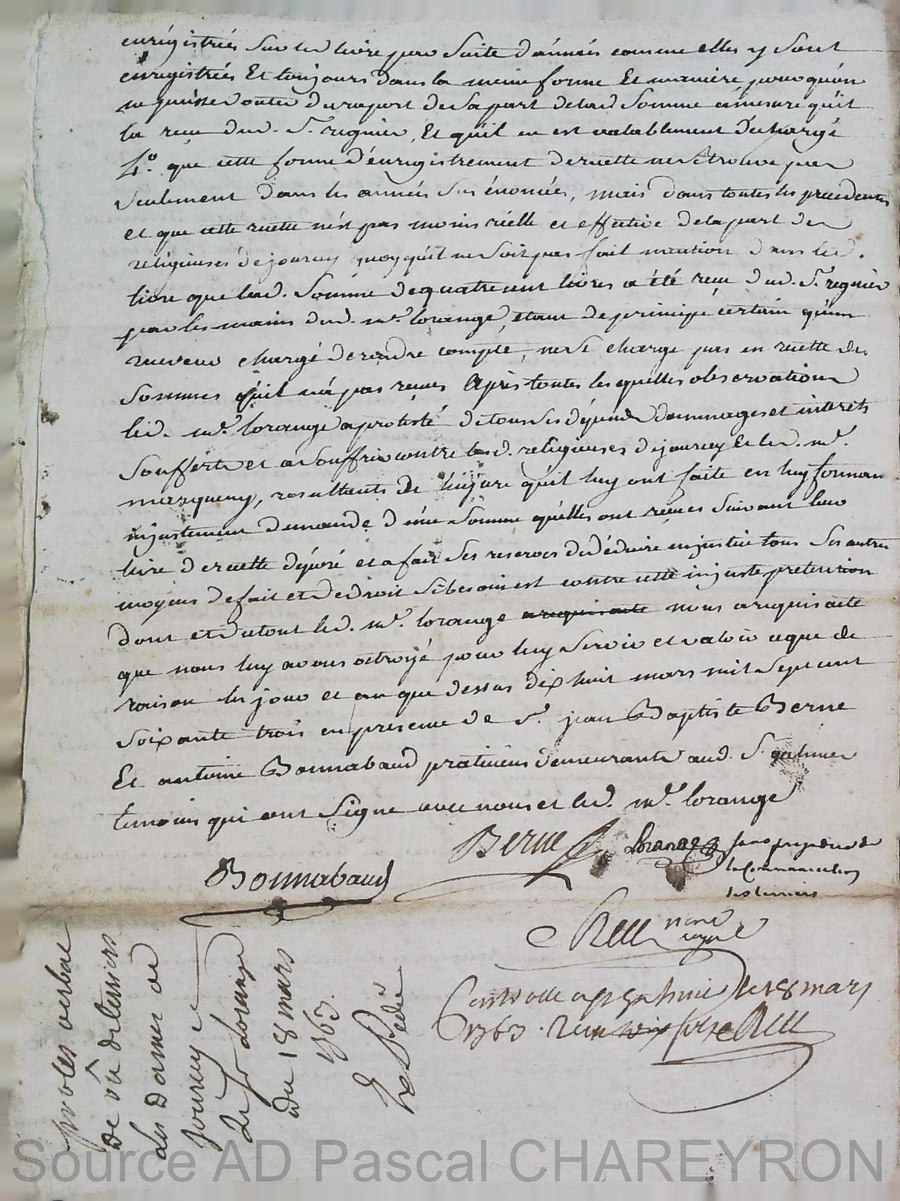 enrégistrées Sur led livre par Suite d'années comme elles y Sont
enregistrées Et toujours dans la meme forme Et maniére pour qu'on
ne puisse douter du raport de Sa part de lad Somme à mesure qu'il
la reçu dud. S. regnier, Et qu'il en est valablement déchargé
4.º que cette forme d'énregistrement de recette ne se trouve pas
Seulement dans les années Sus énoncées, mais dans toutes les precedentes
et que cette recette n'est pas moins réelle et effective de la part des
religieuses de jourcey quoy qu'il ne Soit pas fait mention dans led.
livre que lad. Somme de quatre cent livres a été reçu dud. S. regnier
par les mains dud. m.e lorange, etant de principe certain qu'un
receveur chargé de rendre compte, ne se charge pas en recette des
Sommes qu'il n'a pas reçues Après toutes lesquelles observations
led. m.e lorange a protesté de tous Ses dépens dommages et interets
Soufferts et a Souffrir contre lesd. religieuses de jourcey Et led. m.e
, resultents de l'injure qu'il luy ont faite en luy formant
injustement demande d'une Somme qu'elles ont reçues Suivant leur
livre de recette déposé et a fait Ses reserves de déduire en justice tous Ses autres
moyens de fait et de droit Si besoin est contre cette injuste pretention
dont et du tout led. m.e lorange a requis acte nous a requis acte
que nous luy avons octroyé pour luy Servir et valoir ce que de
raison les jour et an que dessus dix huit mars mil Sept cent
Soixante trois en presence de S. jean Baptiste Berne
Et antoine Bonnabaud praticiens demeurants aud. S. galmier
temoins qui ont Signé avec nous et led. m.e lorange
Berne Lorange Sans prejudice de
la Communication
des terriers
Bonnabaud
Controllé a St galmier le 18 mars
1763. Reçu
proces verbal
de vû de terriers
des dames de
jourcey
de S. lorange
du 18 mars
1763
Source AD Pascal CHAREYRON